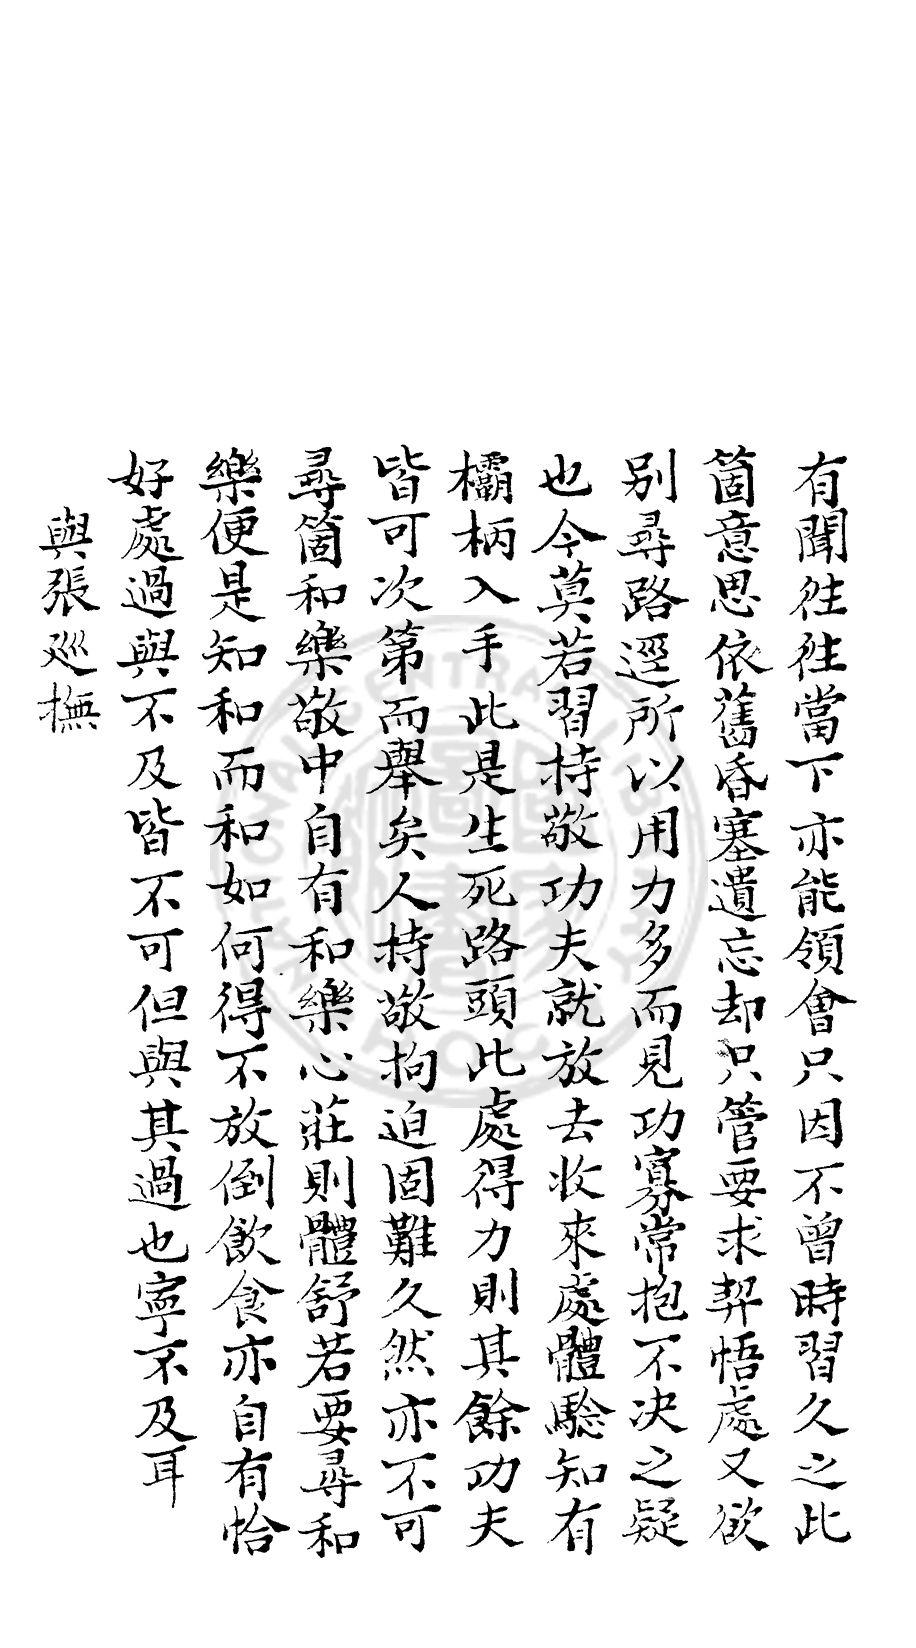 有聞徃徃當下亦能領會只因不曾時習久之此
箇意思依舊昏塞遺忘却只管要求契悟處又欲
别尋路逕所以用力多而見功寡常抱不决之疑
也今莫若習持敬功夫就放去收來處體驗知有
欛柄入手此是生死路頭此處得力則其餘功夫
皆可次第而舉矣人持敬拘迫固難久然亦不可
尋箇和樂敬中自有和樂心莊則體舒若要尋和
樂便是知和而和如何得不放倒飲食亦自有恰
好處過與不及皆不可但與其過也寧不及耳
與張廵撫